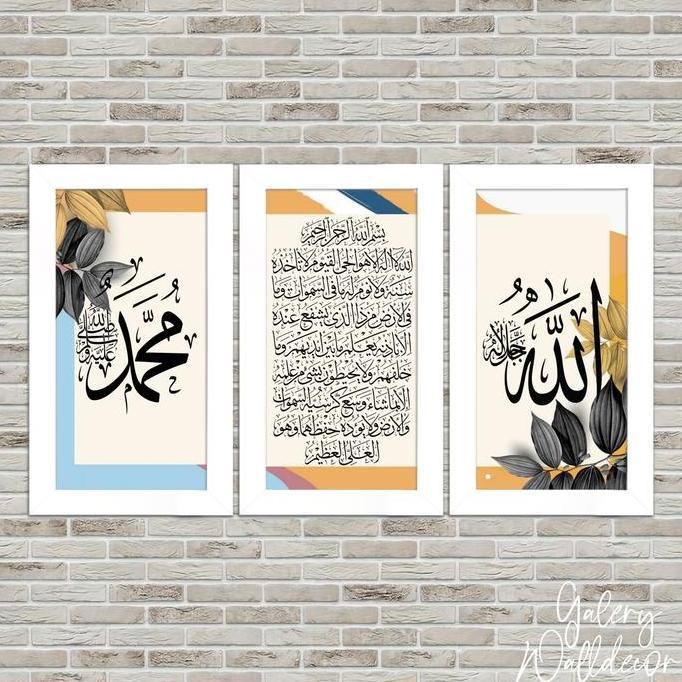 الله
جل جلاله
بسم الله الرحمن الرحيم
الله لا اله الا هو الحي القيوم لا تاخذه
سنة ولا نوم له ما في السموات وما
في الارض من ذا الذي يشفع عنده
الا باذنه يعلم ما بين ايديهم وما
خلفهم ولا يحيطون بشيء من علمه
الا بما شاء وسع كرسيه السموات
والارض ولا يؤده حفظهما وهو
العلي العظيم
محمد
صلى الله عليه وسلم
Galery
Walldecor